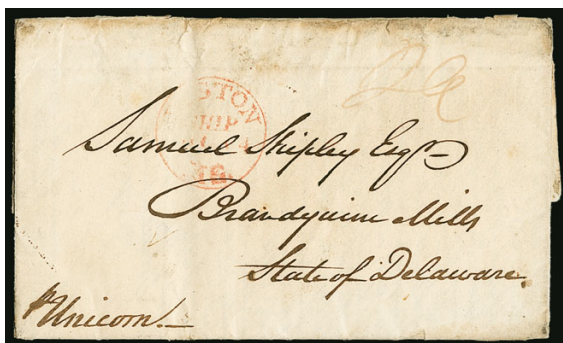 STON
SHIP
Samuel Shipley Esqr
Brandywine Mills
State of Delaware.
pr Unicorn.